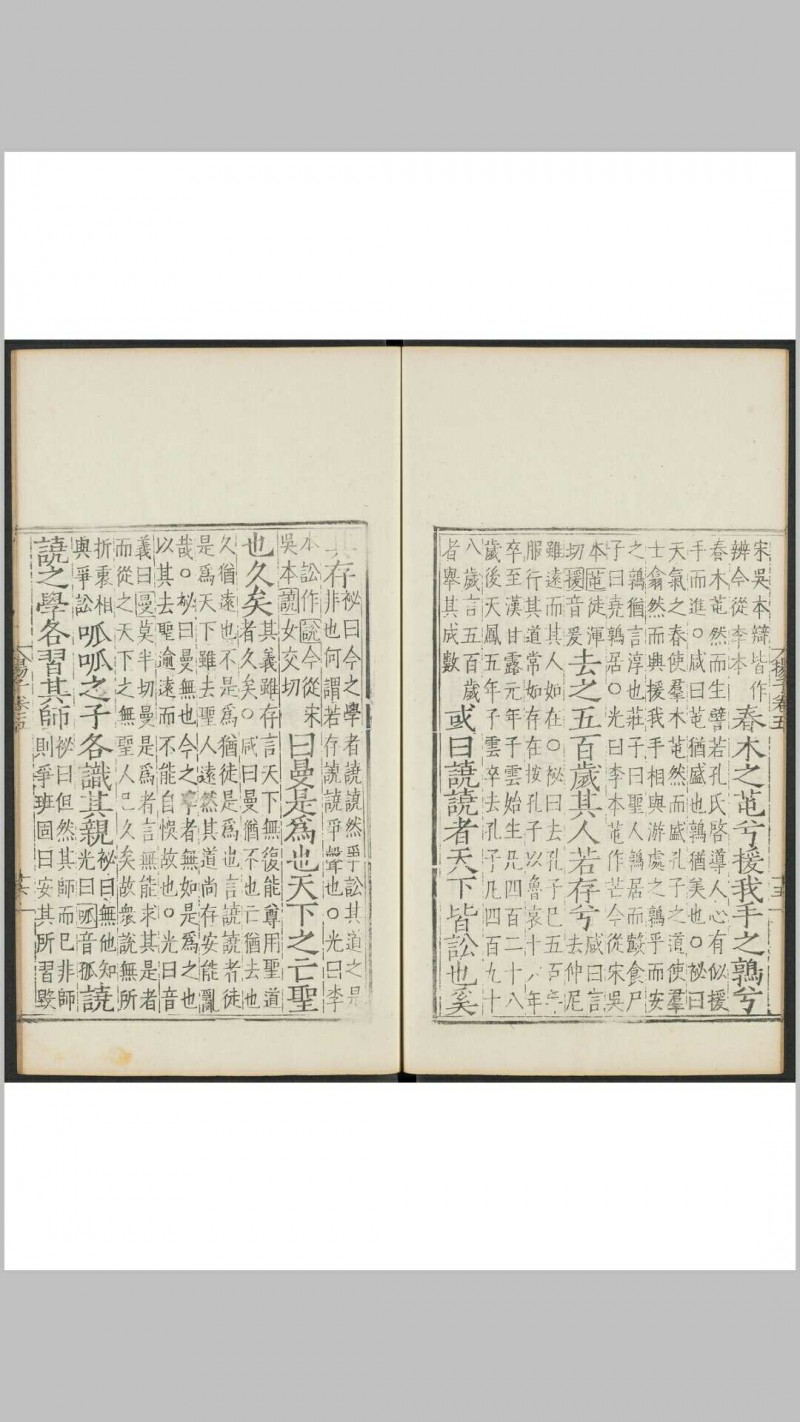 宋吳本辯皆作
辨今從李本
春木之芚兮援我手之鶉兮
春木芚然而生譬若孔氏啓導人心有似援
手而進○咸曰芚猶盛也鶉猶美也○祕曰
天氣之春使羣木芚然而盛孔子之道使羣
士翕然而興援我手相與游處之鶉乎而安
之鶉猶言淳也莊子曰聖人鶉居而鷇食尸
子曰堯鶉居○光曰李本芚作芒今從宋吳
本芚徒渾
切援音爰
去之五百歲其人若存兮
咸曰言
去仲尼
雖遠而其人如在○祕曰去孔子已五百年
服行其道常如存在按孔子以魯哀十六年
卒至漢甘露元年子雲始生凡四百二十八
歲後天鳳五年子雲卒去孔子凡四百九十
八歲言五百歲
者舉其成數
或曰譊譊者天下皆訟也奚
其存
祕曰今之學者譊譊然爭訟其道之是
非也何謂若存譊譊爭聲也○光曰李
本訟作今從宋
吳本譊女交切
曰曼是爲也天下之亡聖
也久矣
其義雖存言天下無復能尊用聖道
者久矣○咸曰曼猶不也亡猶去也
久猶遠也不是爲猶徒是爲也言譊譊者徒
是爲天下雖去聖人遠然其道尚存安能亂
哉○祕曰曼無也今之學者無如是爲之也
以其去聖逾遠而不能自悞故也○光曰音
義曰曼莫半切曼是爲者言無能求其是者
而從之天下之無聖人已久矣故衆說無所
折衷相
與爭訟
呱呱之子各識其親
祕曰無他知
光曰呱音孤
譊
譊之學各習其師
祕曰但然其師而已非師
則爭班固曰安其所習毀